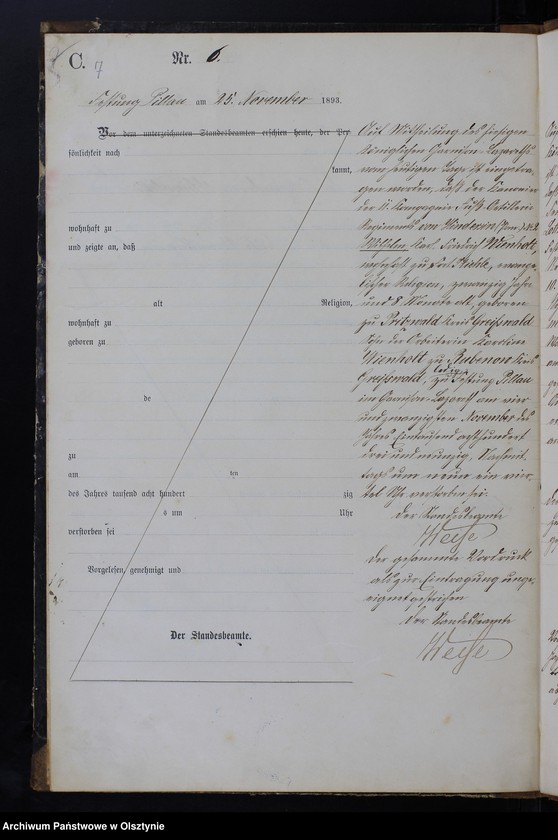 C. 7
Nr. 6.
Festung Pillau am 25. November 1893.
Vor dem unterzeichneten Standesbeamten erschien heute, der Per
sönlichkeit nach
kannt,
wohnhaft zu
und zeigte an, daß
alt Religion,
wohnhaft zu
geboren zu
de
zu
am ten
des Jahres tausend acht hundert zig
s um Uhr
verstorben sei
Vorgelesen, genehmigt und
Der Standesbeamte.
Auf Mittheilung des hiesigen
Königlichen Garnison-Lazareths
vom heutigen Tage ist eingetra-
gen worden, daß der Kanonier
der 11. Kompagnie Fuß-Artillerie
Regiments von Hindersin
Wilhelm Karl Friedrich Wienholt,
wohnhaft zu Fort Stiehle, evange-
lischer Religion, zwanzig Jahre
und 8 Monate alt, geboren
zu Pritzwald Kreis Greifswald
Sohn der Arbeiterin Karoline
Wienholt zu Rubenow Kreis
Greifswald, zu Festung Pillau
im Garnison-Lazareth am vier
und zwanzigsten November des
Jahres Eintausend achthundert
drei und neunzig, Nachmit-
tags um neun ein vier-
tel Uhr verstorben sei.
Der Standesbeamte
Weese
Der gesammte Vordruck
als zur Eintragung unge-
eignet gestrichen
Der Standesbeamte
Weese
Archiwum Państwowe w Olsztynie